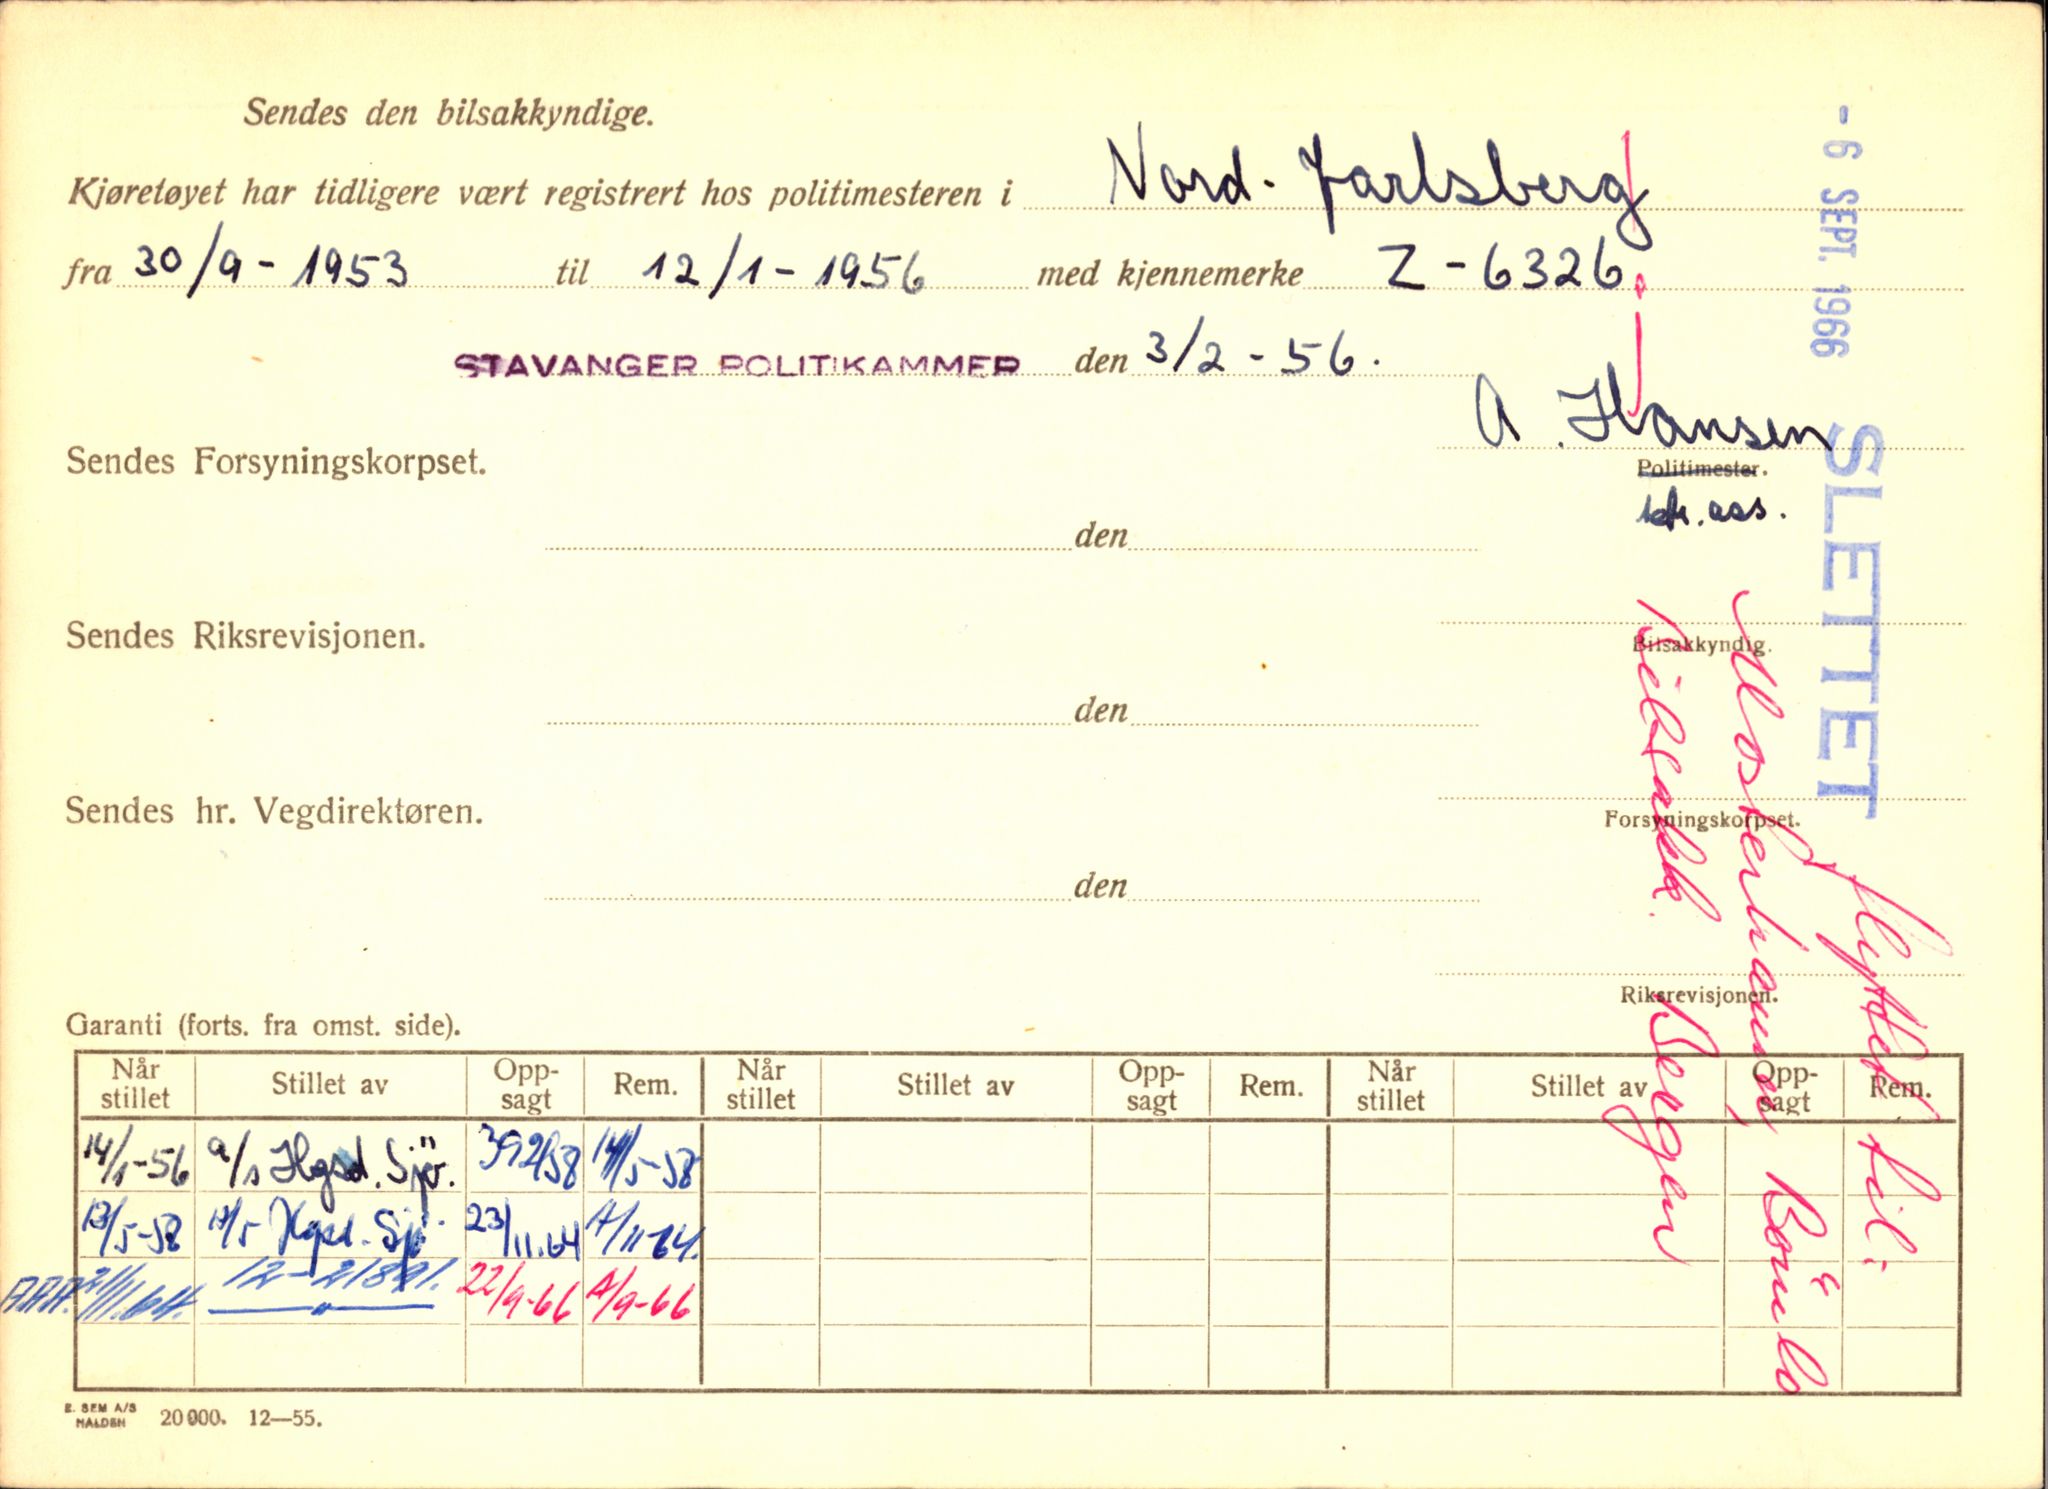 Sendes den bilsakkyndige.
Kjøretøyet har tidligere vært registrert hos politimesteren i Nord-Jarlsberg
fra 30/9 - 1953 til 12/1 - 1956 med kjennemerke Z - 6326.
STAVANGER POLITIKAMMER den 3/2 - 56.
A. Hansen
Politimester.
ktr. ass.
Sendes Forsyningskorpset.
den
Bilsakkyndig.
Sendes Riksrevisjonen.
den
Forsyningskorpset.
Sendes hr. Vegdirektøren.
den
Riksrevisjonen.
- 6 SEPT. 1966
SLETTET
flyttet til:
Mosterhamn, Bömlo
Bilsakk. Bergen
Garanti (forts. fra omst. side).
Når stillet Stillet av Opp-sagt Rem. Når stillet Stillet av Opp-sagt Rem. Når stillet Stillet av Opp-sagt Rem.
14/1-56 a/s Hgsd. Sjö. 14/5-58
13/5-58 Hgsd. Sjö 23/11.64 A/11-64.
/11.64. 12-21891. 22/9-66 A/9-66
E. SEM A/S
HALDEN 20000. 12—55.